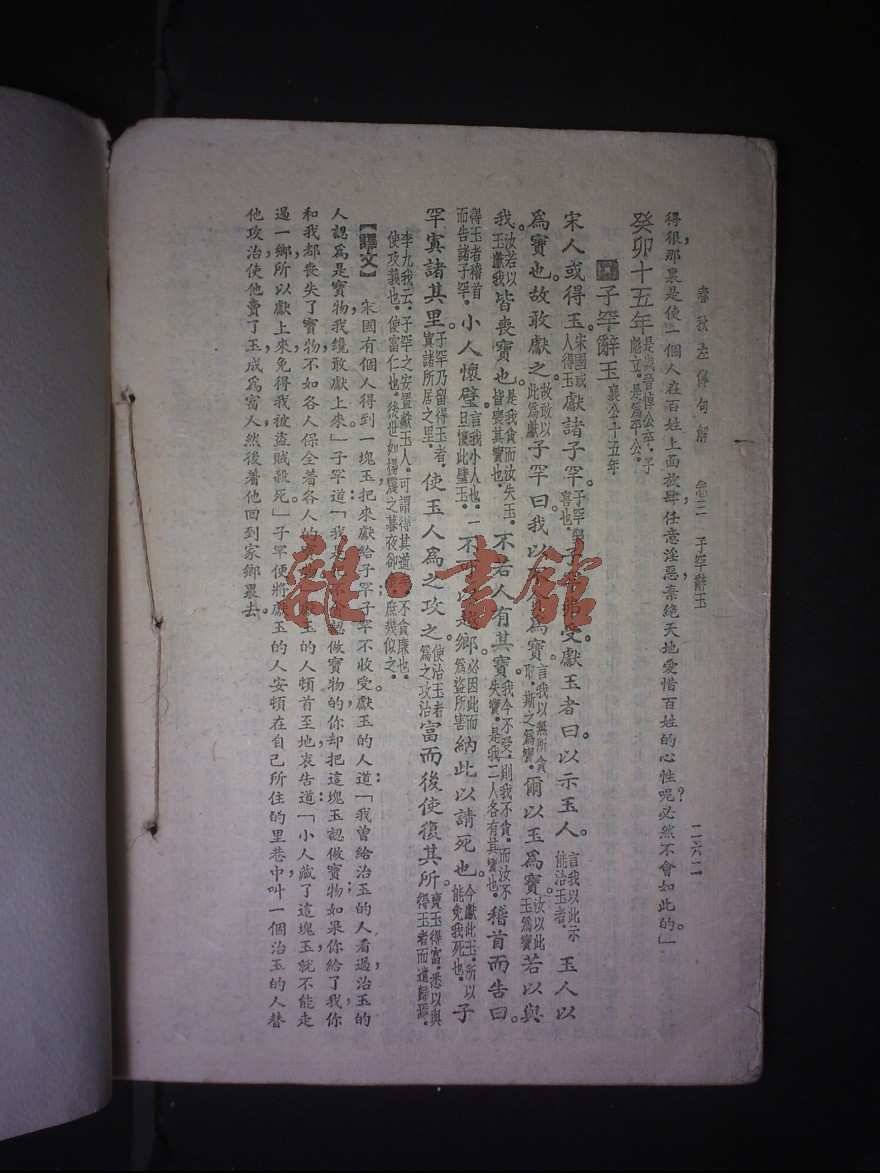 春秋左傳句解 卷三 子罕辭玉 二六二
得很，那裏是使一個人在百姓上面放肆，任意淫惡，棄絕天地愛惜百姓的心性呢？必然不會如此的。」
癸卯十五年 是歲晉悼公卒，子彪立，是爲平公。
子罕辭玉 襄公十五年
宋人或得玉。宋國或人得玉 獻諸子罕。子罕樂喜也。子罕弗受。獻玉者曰。以示玉人。言我以此示能治玉者。玉人以
爲寶也。故敢獻之。故敢以此爲獻 子罕曰。我以不貪爲寶。言我以無所貪取，斯之爲寶。爾以玉爲寶。汝以此玉爲寶 若以與
我。汝若以玉獻我 皆喪寶也。是我貪而汝失玉，皆喪其寶也。不若人有其寶。我今不受，則我不貪，而汝不失寶，是我二人各有其寶也。稽首而告曰。
得玉者稽首而告諸子罕。小人懷璧。言我小人也，一旦懷此璧玉。不可以越鄉。必因此而爲盜所害 納此以請死也。今獻此玉，所以能免我死也。子
罕寘諸其里。子罕乃留得玉者，寘諸所居之里。使玉人爲之攻之。使治玉者爲之攻治 富而後使復其所。賣玉得富，悉以與得玉者而遣歸焉。
李九我云，子罕之安置獻玉人，可謂得其道 不貪廉也，使攻義也，使富仁也。後世如楊震之暮夜卻 庶幾似之。
【譯文】 宋國有個人得到一塊玉，把來獻給子罕，子罕不收受。獻玉的人道：「我曾給治玉的人看過，治玉的
人認爲是寶物，我纔敢獻上來。」子罕道：「我是 認做寶物的，你却把這塊玉認做寶物；如果你給了我，你
和我都喪失了寶物，不如各人保全着各人的 玉的人頓首至地，哀告道：「小人藏了這塊玉，就不能走
過一鄉，所以獻上來，免得我被盜賊殺死。」子罕便將獻玉的人安頓在自己所住的里巷中，叫一個治玉的人替
他攻治，使他賣了玉，成爲富人，然後着他回到家鄉裏去。
雜·書館